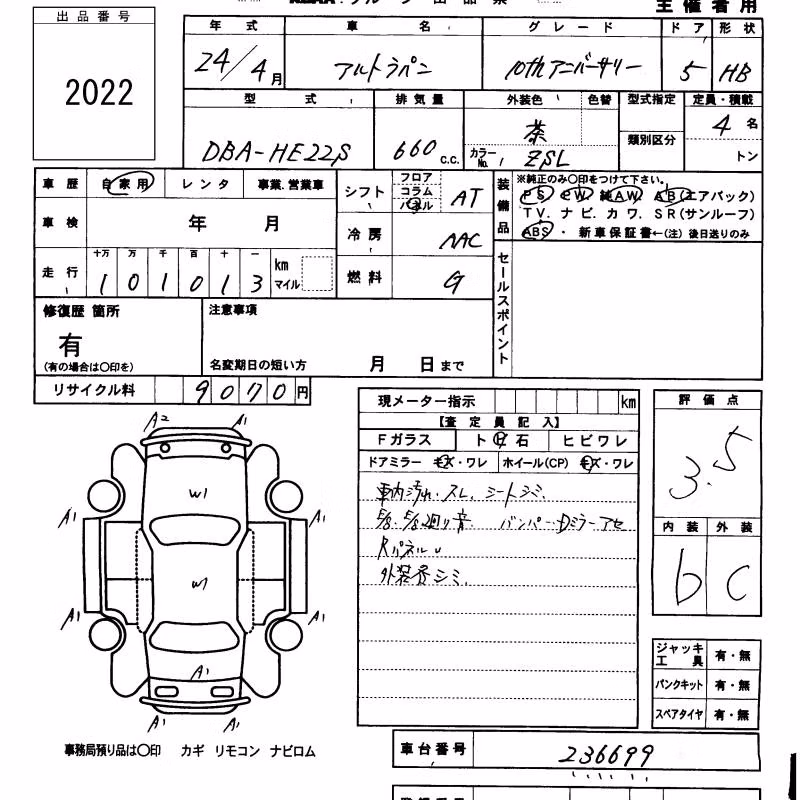 主催者用
出品番号
2022
年式 車名 グレード ドア 形状
24/4月 アルトラパン 10thアニバーサリー 5 HB
型式 排気量 外装色 色替 型式指定 定員・積載
DBA-HE22S 660 c.c. 茶 4名
カラーNo. ZSL 類別区分 トン
車歴 自家用 レンタ 事業.営業車
シフト フロア コラム パネル AT
装備品 ※純正のみ○印をつけて下さい。
PS PW. 純AW. AB(エアバック)
TV. ナビ. カワ. SR(サンルーフ)
ABS ・ 新車保証書←(注)後日送りのみ
車検 年 月
冷房 AAC
走行 十万 万 千 百 十 一
1 0 1 0 1 3 km マイル
燃料 G
セールスポイント
修復歴 箇所
有
(有の場合は○印を)
注意事項
名変期日の短い方 月 日まで
リサイクル料 9070円
現メーター指示 km
【査定員記入】
Fガラス ト 石 ヒビワレ
ドアミラー キズ・ワレ ホイール(CP) キズ・ワレ
車内汚れ.スレ.シートシミ.
バンパー.Dミラーアセ
Rパネルu
シミ.
評価点
3.5
内装 外装
b C
A2 A1
W1
A1 A1
W1
A1 A1
A1
A1 A1
ジャッキ 工具 有・無
パンクキット 有・無
スペアタイヤ 有・無
事務局預り品は○印 カギ リモコン ナビロム
車台番号 236699